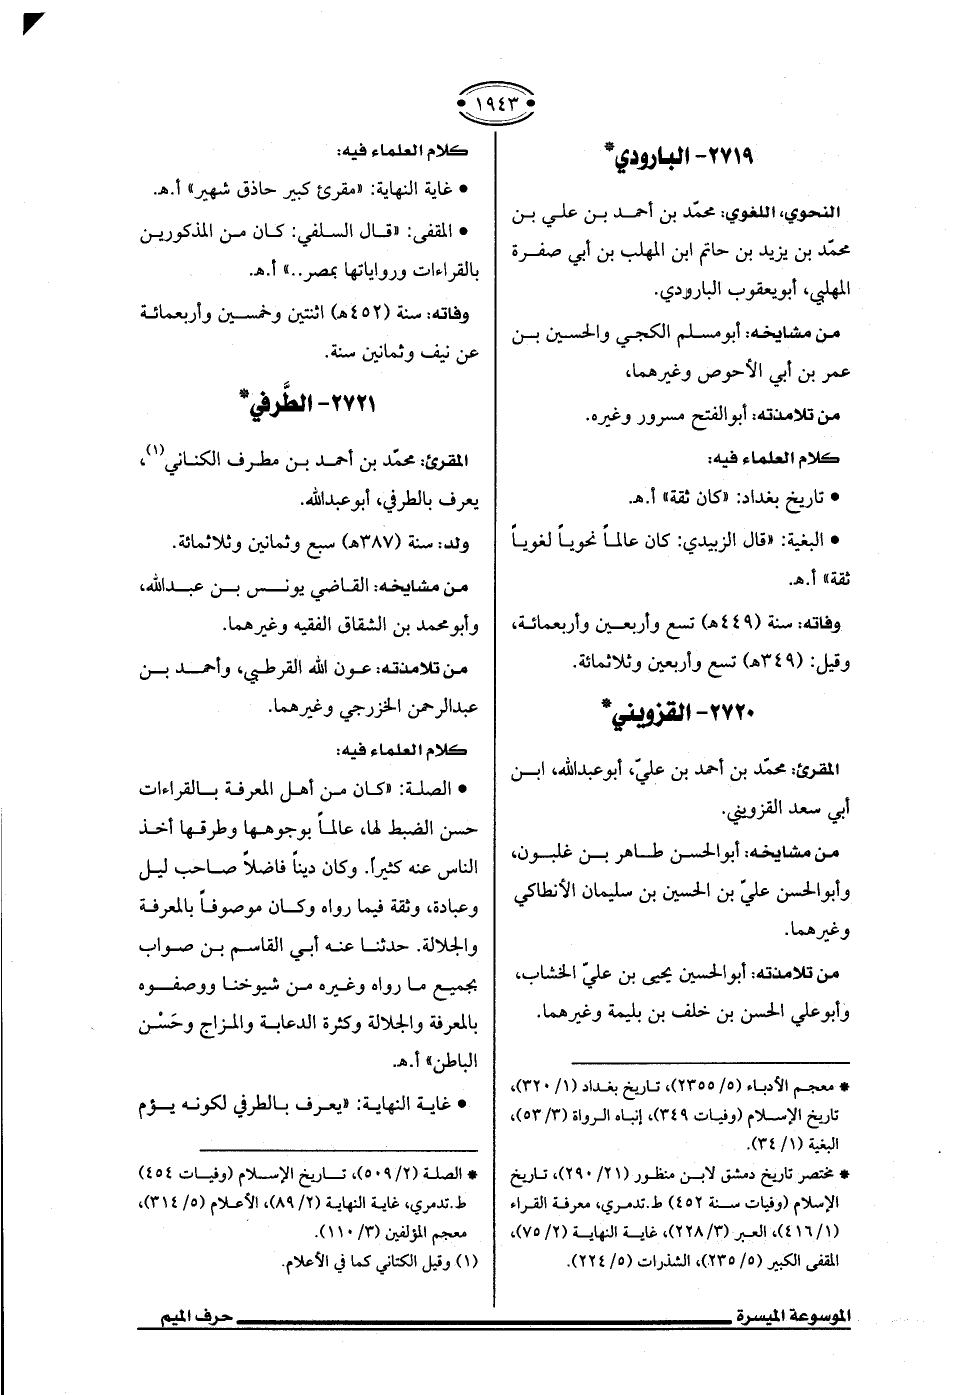 ١٩٤٣
٢٧١٩- البارودي*
النحوي، اللغوي: محمّد بن أحمد بن علي بن
محمّد بن يزيد بن حاتم ابن المهلب بن أبي صفرة
المهلبي، أبويعقوب البارودي.
من مشايخه: أبومسلم الكجي والحسين بن
عمر بن أبي الأحوص وغيرهما،
من تلامذته: أبوالفتح مسرور وغيره.
كلام العلماء فيه:
• تاريخ بغداد: «كان ثقة» أ.هـ.
• البغية: «قال الزبيدي: كان عالماً نحوياً لغوياً
ثقة» أ.هـ.
وفاته: سنة (٤٤٩هـ) تسع وأربعين وأربعمائة،
وقيل: (٣٤٩هـ) تسع وأربعين وثلاثمائة.
٢٧٢٠- القزويني*
المقرئ: محمّد بن أحمد بن عليّ، أبوعبدالله، ابن
أبي سعد القزويني.
من مشايخه: أبوالحسن طاهر بن غلبون،
وأبوالحسن عليّ بن الحسين بن سليمان الأنطاكي
وغيرهما.
من تلامذته: أبوالحسين يحيى بن عليّ الخشاب،
وأبوعلي الحسن بن خلف بن بليمة وغيرهما.
* معجم الأدباء (٥/ ٢٣٥٥)، تاريخ بغداد (١/ ٣٢٠)،
تاريخ الإسلام (وفيات ٣٤٩)، إنباه الرواة (٣/ ٥٣)،
البغية (١/ ٣٤).
* مختصر تاريخ دمشق لابن منظور (٢١/ ٢٩٠)، تاريخ
الإسلام (وفيات سنة ٤٥٢) ط.تدمري، معرفة القراء
(١/ ٤١٦)، العبر (٣/ ٢٢٨)، غاية النهاية (٢/ ٧٥)،
المقفى الكبير (٥/ ٢٣٥)، الشذرات (٥/ ٢٢٤).
كلام العلماء فيه:
• غاية النهاية: «مقرئ كبير حاذق شهير» أ.هـ.
• المقفى: «قال السلفي: كان من المذكورين
بالقراءات ورواياتها بمصر..» أ.هـ.
وفاته: سنة (٤٥٢هـ) اثنتين وخمسين وأربعمائة
عن نيف وثمانين سنة.
٢٧٢١- الطَّرفي*
المقرئ: محمّد بن أحمد بن مطرف الكناني(١)،
يعرف بالطرفي، أبوعبدالله.
ولد: سنة (٣٨٧هـ) سبع وثمانين وثلاثمائة.
من مشايخه: القاضي يونس بن عبدالله،
وأبومحمد بن الشقاق الفقيه وغيرهما.
من تلامذته: عون الله القرطبي، وأحمد بن
عبدالرحمن الخزرجي وغيرهما.
كلام العلماء فيه:
• الصلة: «كان من أهل المعرفة بالقراءات
حسن الضبط لها، عالماً بوجوهها وطرقها أخذ
الناس عنه كثيراً. وكان ديناً فاضلاً صاحب ليل
وعبادة، وثقة فيما رواه وكان موصوفاً بالمعرفة
والجلالة. حدثنا عنه أبي القاسم بن صواب
بجميع ما رواه وغيره من شيوخنا ووصفوه
بالمعرفة والجلالة وكثرة الدعابة والمزاج وحَسْن
الباطن» أ.هـ.
• غاية النهاية: «يعرف بالطرفي لكونه يؤم
* الصلة (٢/ ٥٠٩)، تاريخ الإسلام (وفيات ٤٥٤)
ط.تدمري، غاية النهاية (٢/ ٨٩)، الأعلام (٥/ ٣١٤)،
معجم المؤلفين (٣/ ١١٠).
(١) وقيل الكتاني كما في الأعلام.
الموسوعة الميسرة حرف الميم